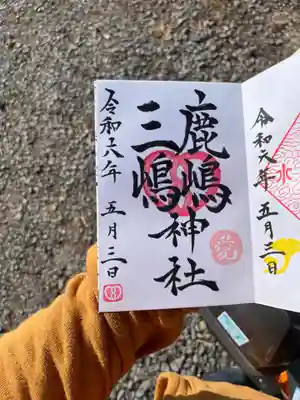 令和六年 五月三日
鹿嶋神社
三嶋
令和六年 五月三日
水